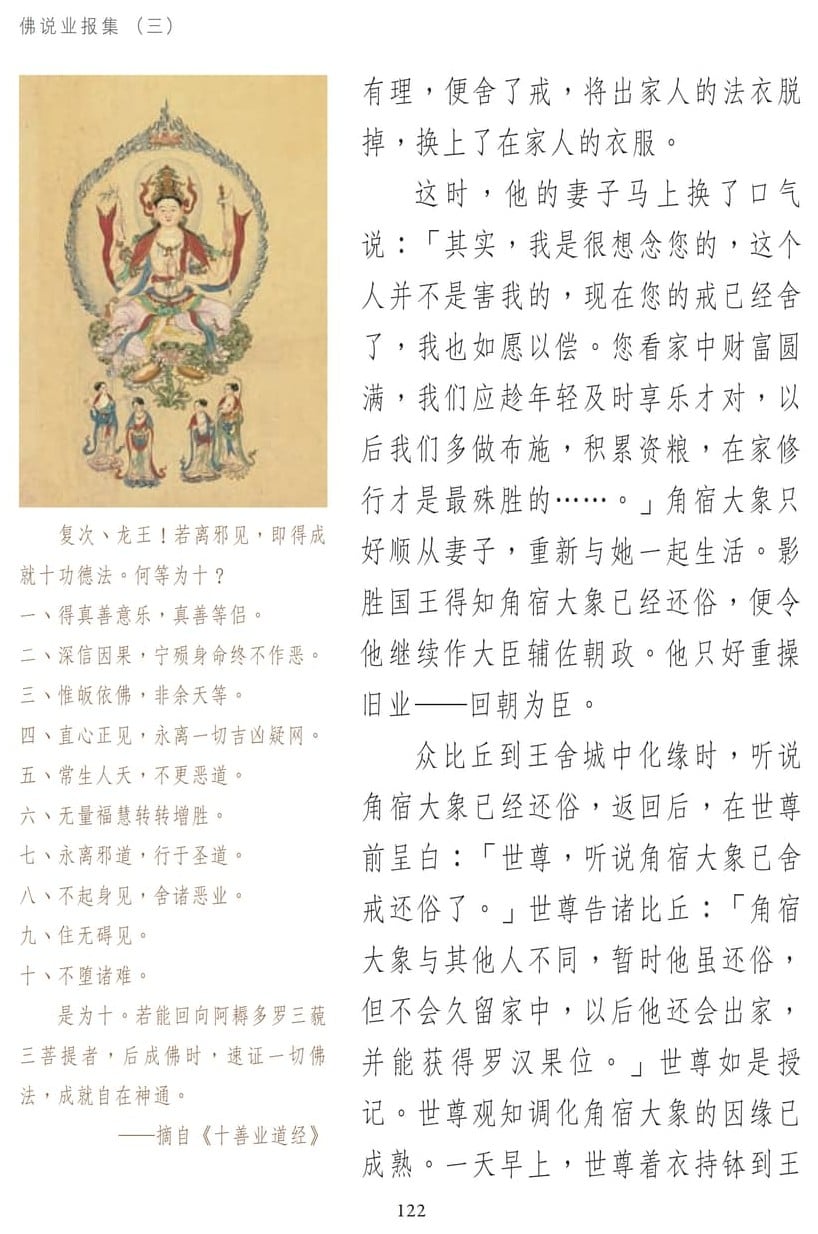 佛说业报集 （三）
复次、龙王！若离邪见，即得成
就十功德法。何等为十？
一、得真善意乐，真善等侣。
二、深信因果，宁殒身命终不作恶。
三、惟皈依佛，非余天等。
四、直心正见，永离一切吉凶疑网。
五、常生人天，不更恶道。
六、无量福慧转转增胜。
七、永离邪道，行于圣道。
八、不起身见，舍诸恶业。
九、住无碍见。
十、不堕诸难。
是为十。若能回向阿耨多罗三藐
三菩提者，后成佛时，速证一切佛
法，成就自在神通。
——摘自《十善业道经》
有理，便舍了戒，将出家人的法衣脱
掉，换上了在家人的衣服。
这时，他的妻子马上换了口气
说：「其实，我是很想念您的，这个
人并不是害我的，现在您的戒已经舍
了，我也如愿以偿。您看家中财富圆
满，我们应趁年轻及时享乐才对，以
后我们多做布施，积累资粮，在家修
行才是最殊胜的……。」角宿大象只
好顺从妻子，重新与她一起生活。影
胜国王得知角宿大象已经还俗，便令
他继续作大臣辅佐朝政。他只好重操
旧业——回朝为臣。
众比丘到王舍城中化缘时，听说
角宿大象已经还俗，返回后，在世尊
前呈白：「世尊，听说角宿大象已舍
戒还俗了。」世尊告诸比丘：「角宿
大象与其他人不同，暂时他虽还俗，
但不会久留家中，以后他还会出家，
并能获得罗汉果位。」世尊如是授
记。世尊观知调化角宿大象的因缘已
成熟。一天早上，世尊着衣持钵到王
122